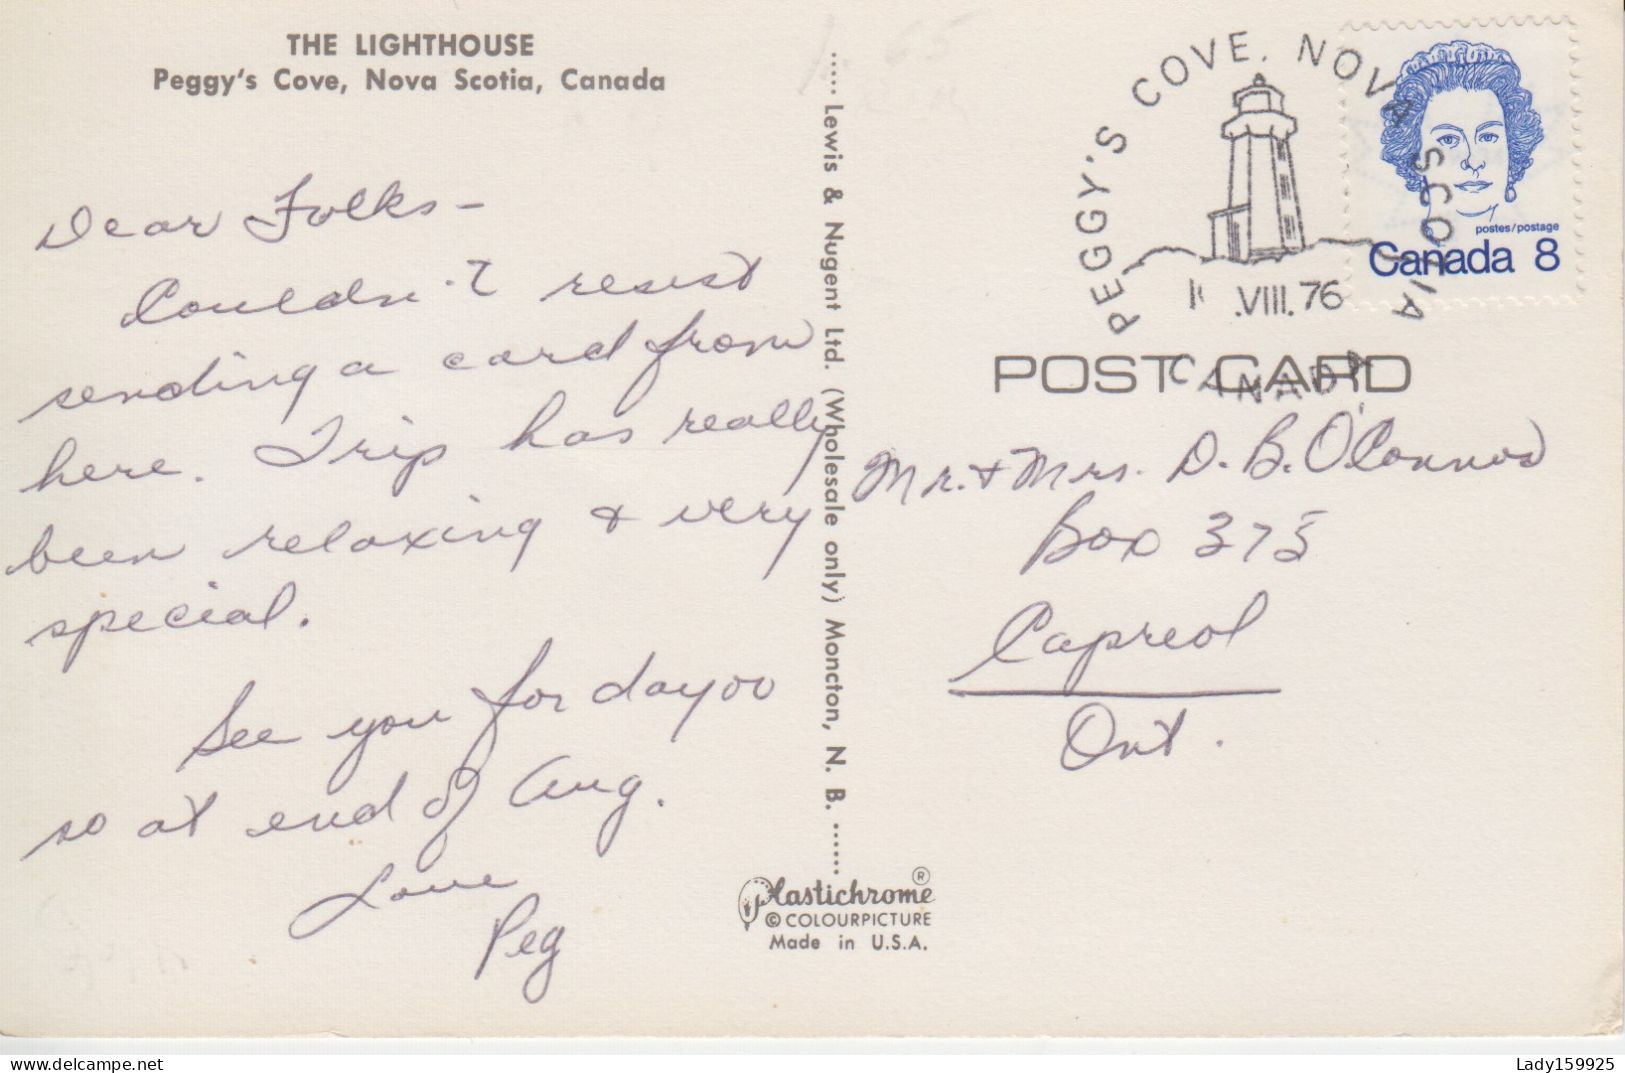 THE LIGHTHOUSE
Peggy's Cove, Nova Scotia, Canada
Dear Folks -
Couldn't resist
sending a card from
here. Trip has really
been relaxing & very
special.
See you for day or
so at end of Aug.
Love
Peg
..... Lewis & Nugent Ltd. (Wholesale only) Moncton, N. B. ......
Plastichrome ®
© COLOURPICTURE
Made in U.S.A.
PEGGY'S COVE. NOVA SCOTIA
CANADA
.VIII.76
postes/postage
Canada 8
POST CARD
Mr. & Mrs. D. B. O'Connor
Box 375
Capreol
Ont.
delcampe.net
Lady159925